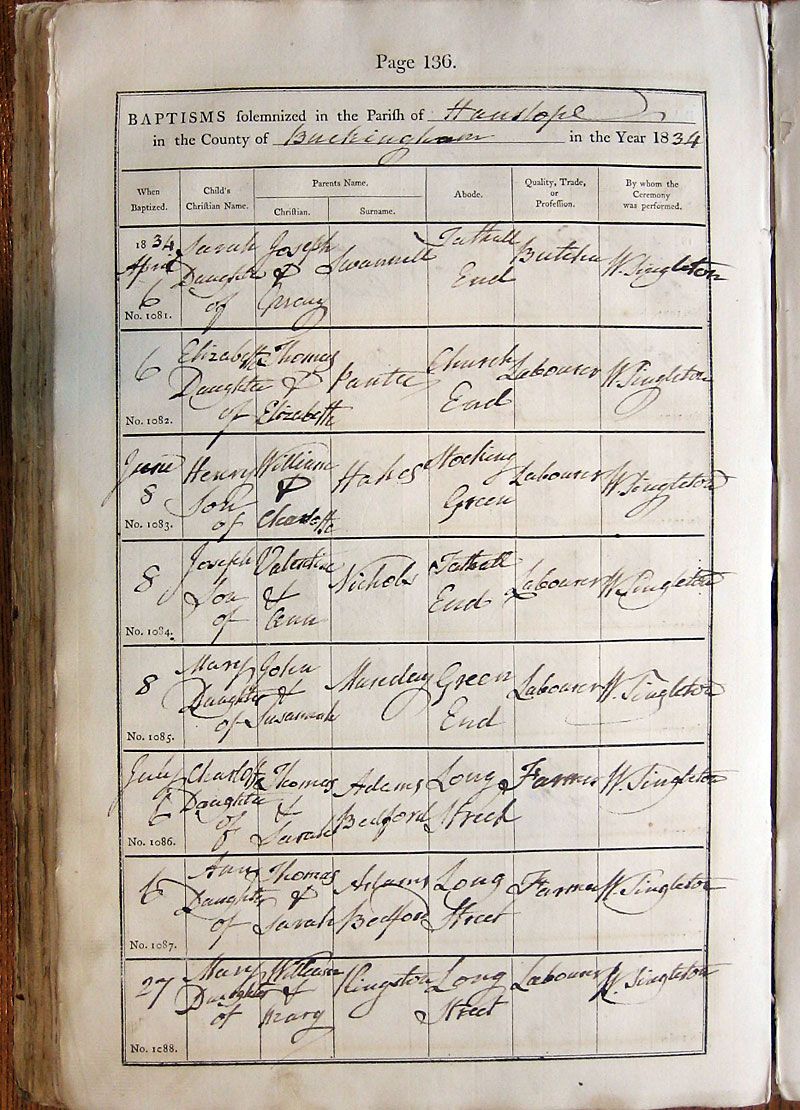 Page 136.
BAPTISMS solemnized in the Parish of Hanslope
in the County of Buckingham in the Year 1834
When Baptized.
Child's Christian Name.
Parents Name.
Christian.
Surname.
Abode.
Quality, Trade, or Profession.
By whom the Ceremony was performed.
1834 Sarah Joseph Tathall
April Daughter & Swannell Butcher W. Singleton
6 of Mary End
No. 1081.
Elizabeth Thomas Church
6 Daughter & Panter Labourer W. Singleton
of Elizabeth End
No. 1082.
June Henry William Stocking
8 Son & Hakes Labourer W. Singleton
of Charlotte Green
No. 1083.
Joseph Valentine Tathall
8 Son & Nichols Labourer W. Singleton
of Ann End
No. 1084.
Mary John Green
8 Daughter & Labourer W. Singleton
of Susannah End
No. 1085.
July Charlotte Thomas Adams Long Farmer W. Singleton
6 Daughter & Bedford Street
of Sarah
No. 1086.
Ann Thomas Adams Long
6 Daughter & Bedford Street Farmer W. Singleton
of Sarah
No. 1087.
Mary William Long
27 Daughter & Kingston Labourer W. Singleton
of Mary Street
No. 1088.